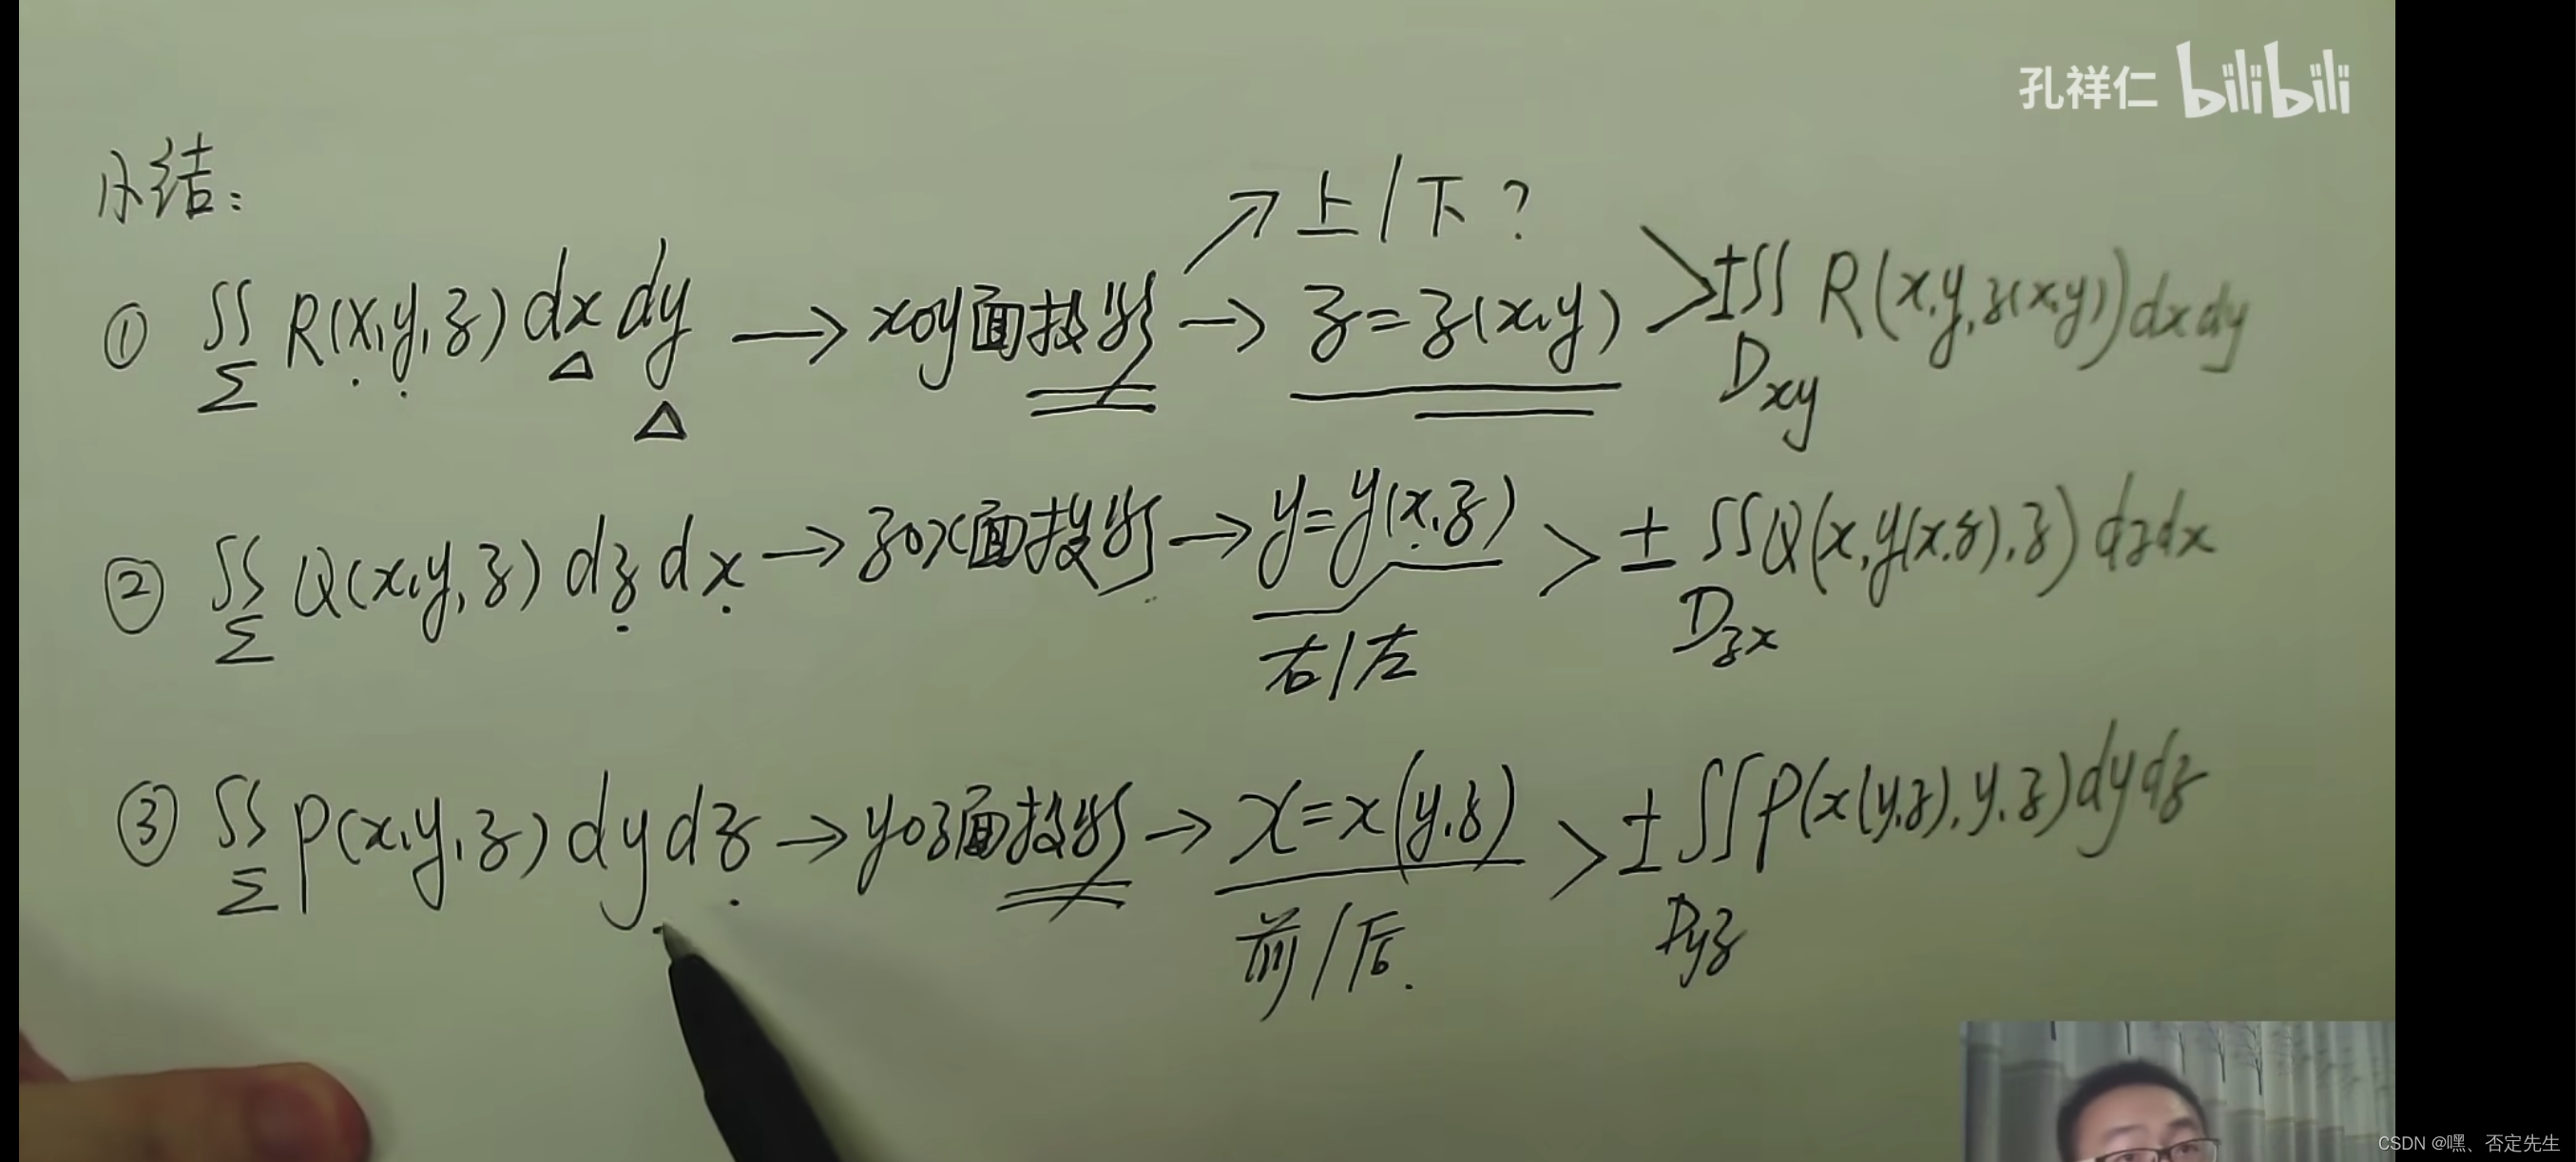 孔祥仁 bilibili
小结:
上/下?
① ∬_Σ R(x,y,z) dx dy → xoy面投影 → z=z(x,y) > ±∬_Dxy R(x,y,z(x,y)) dx dy
② ∬_Σ Q(x,y,z) dz dx → zox面投影 → y=y(x,z) > ±∬_Dzx Q(x,y(x,z),z) dz dx
右/左
③ ∬_Σ P(x,y,z) dy dz → yoz面投影 → x=x(y,z) > ±∬_Dyz P(x(y,z),y,z) dy dz
前/后.
CSDN @嘿、否定先生